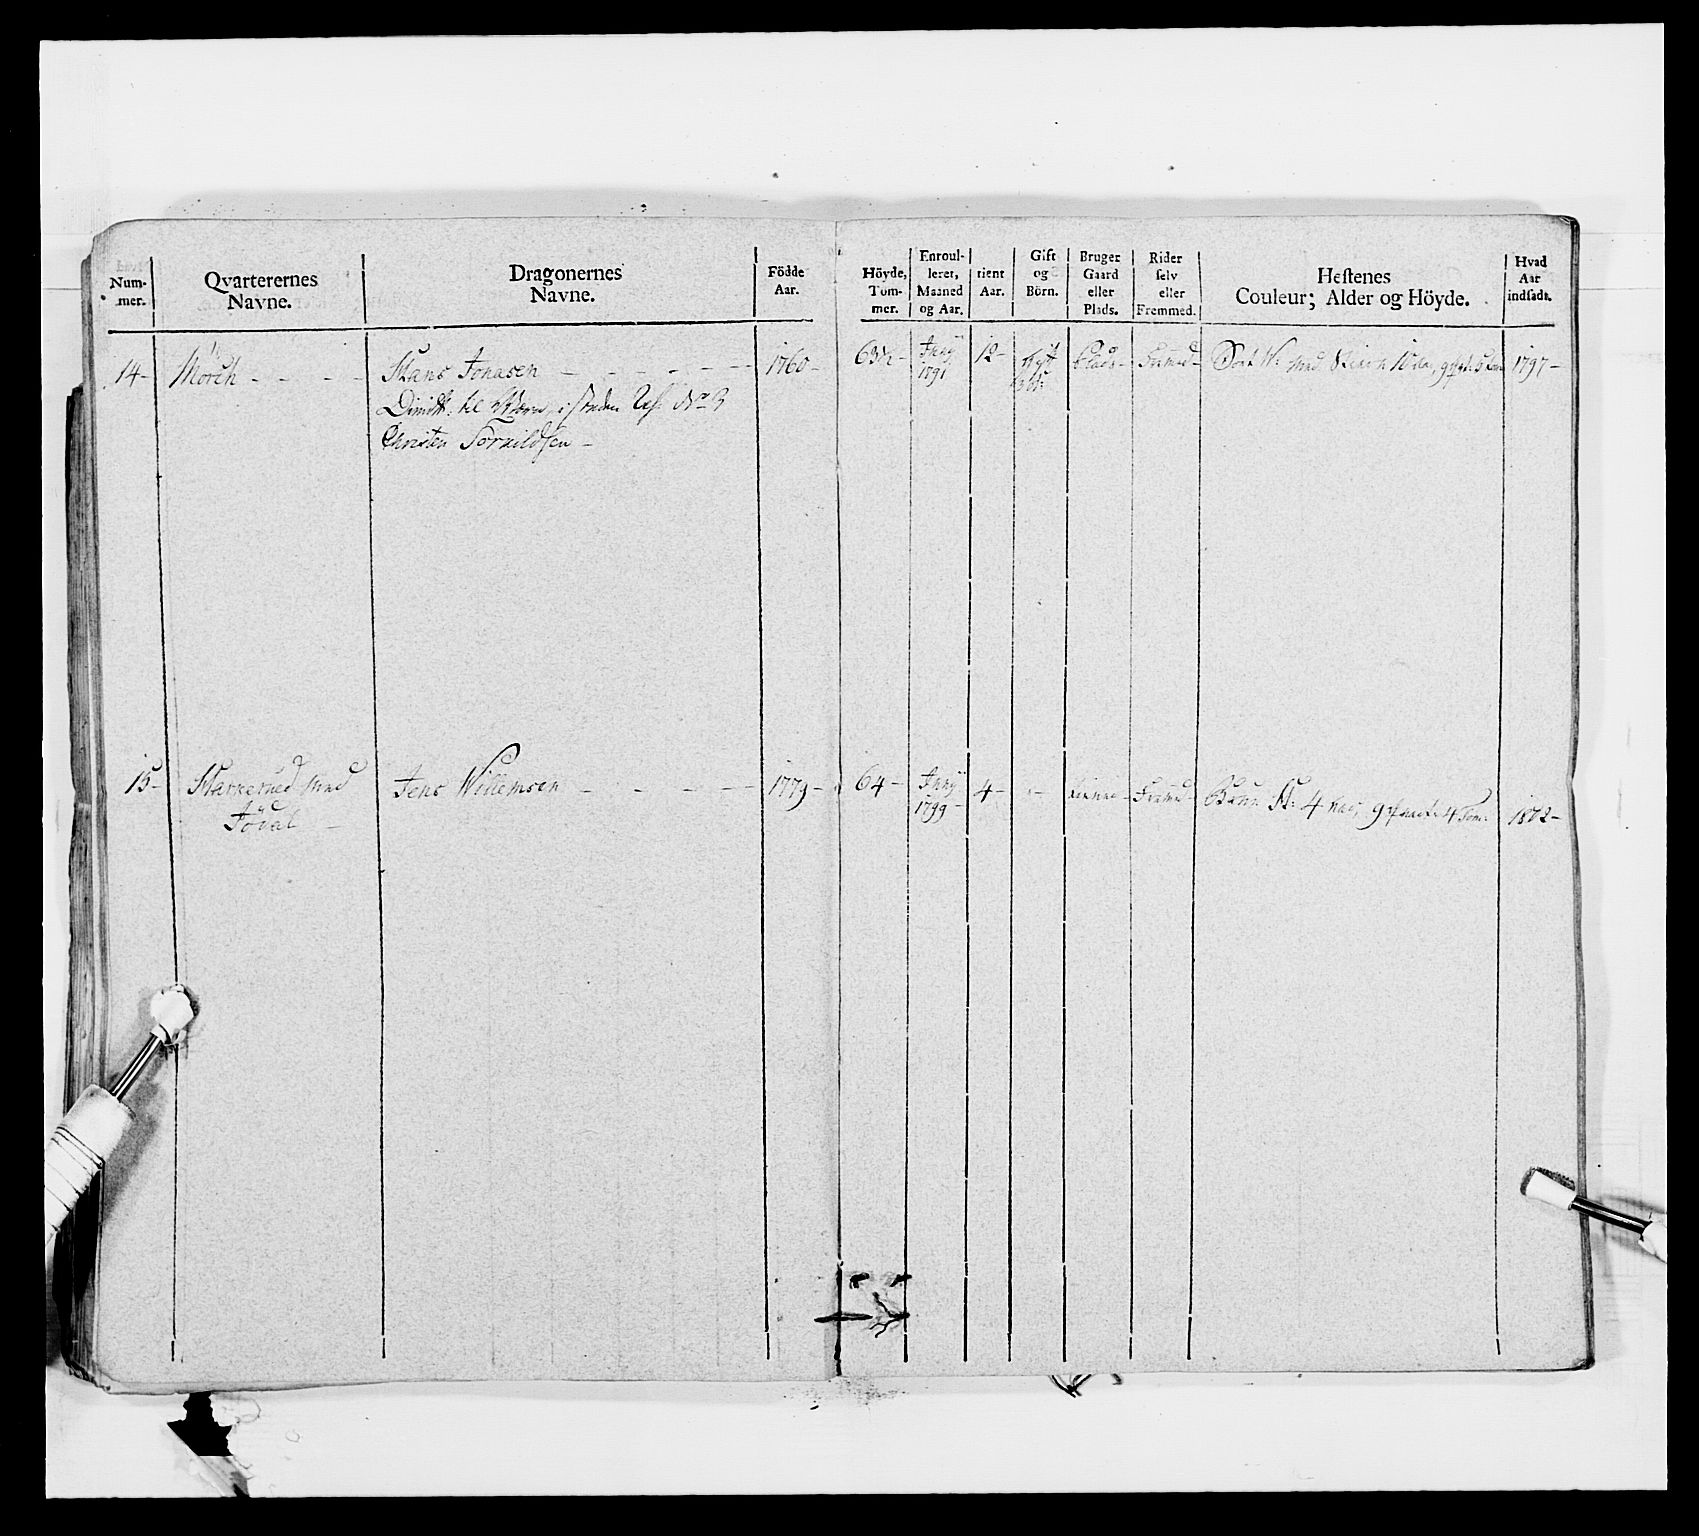 Num-
mer.
Qvarterernes
Navne.
Dragonernes
Navne.
Födde
Aar.
Höyde,
Tom-
mer.
Enroul-
leret,
Maaned
og Aar.
tient
Aar.
Gift
og
Börn.
Bruger
Gaard
eller
Plads.
Rider
selv
eller
Fremmed.
Hestenes
Couleur; Alder og Höyde.
Hvad
Aar
indsadt.
14-
Mörch - - - -
Hans Jonasen - - - - - -
til i steden No
Christen -
1760-
63½-
1791
12-
Gift
Plads-
Fremed-
Sort H: med 10 Aar, 9 1797-
15-
med
-
Jens Willemsen - - - -
1779-
64-
1799-
4-
-
Fremed-
Bruun H: 4 Aar, 9 qvart: 4 Tom:
1802-